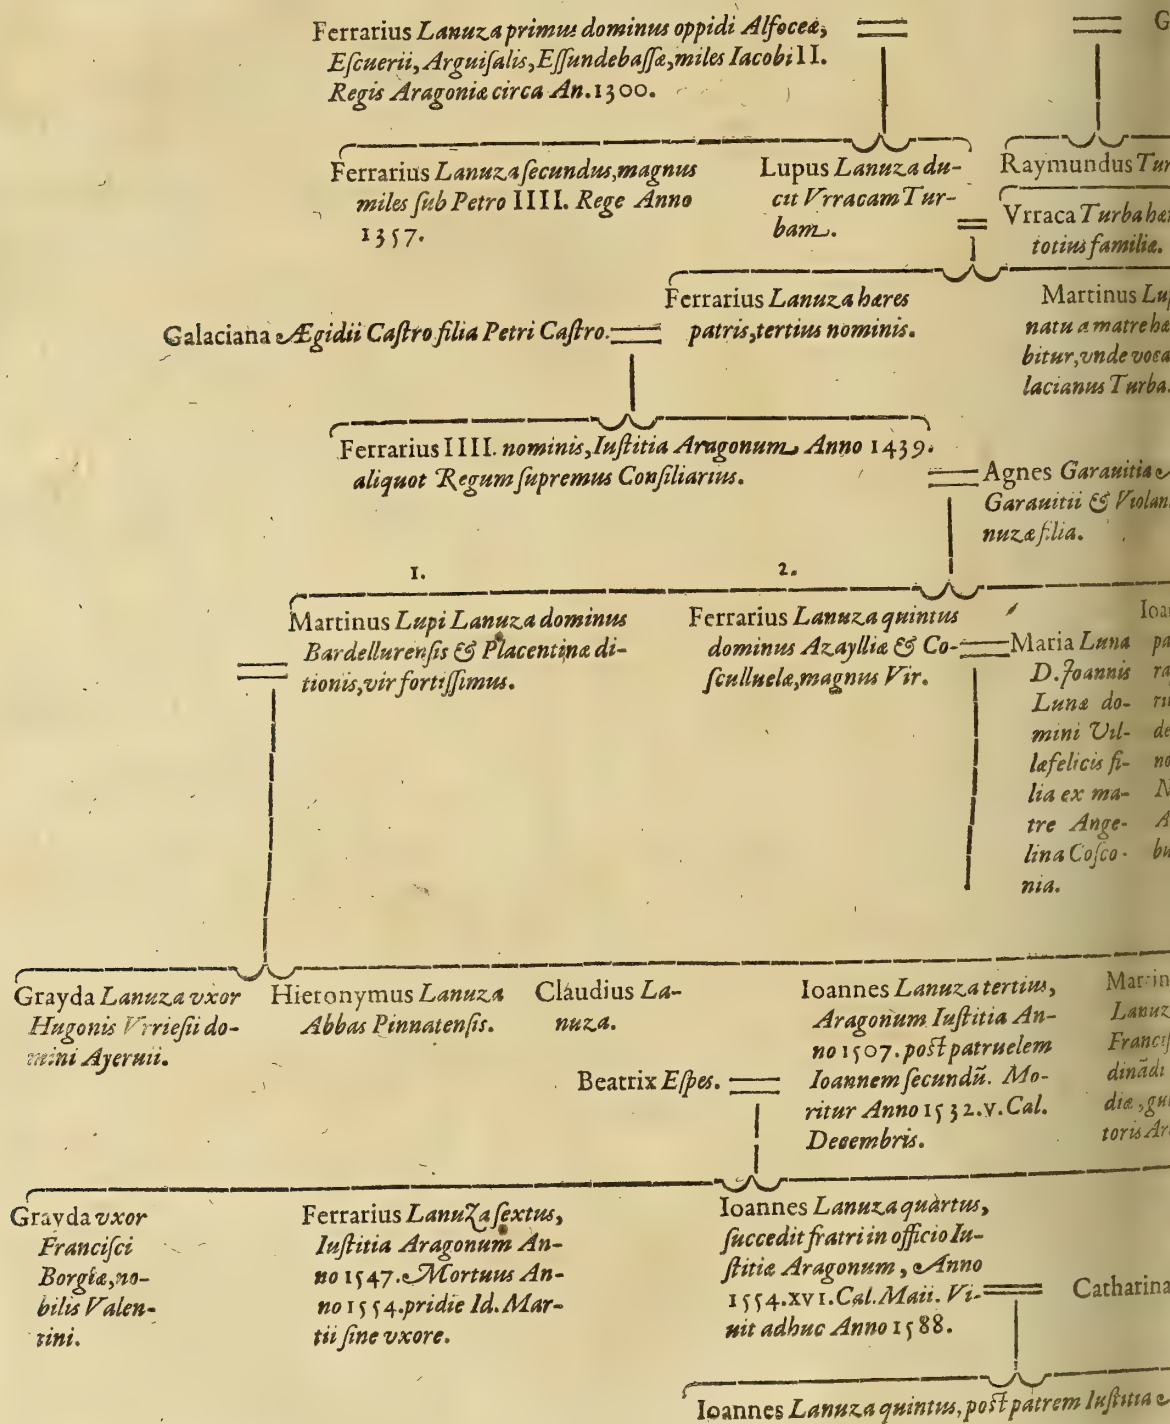 Ferrarius Lanuza primus dominus oppidi Alfoceæ,
Eſcuerii, Arguiſalis, Eſſundebaſſæ, miles Iacobi II.
Regis Aragoniæ circa An. 1300.
G
Ferrarius Lanuza ſecundus, magnus
miles ſub Petro IIII. Rege Anno
1357.
Lupus Lanuza du-
cit Vrracam Tur-
bam.
Raymundus Tur
Vrraca Turba hæ
totius familiæ.
Ferrarius Lanuza hæres
patris, tertius nominis.
Galaciana Ægidii Caſtro filia Petri Caſtro.
Martinus Lup
natu a matre hæ
bitur, vnde voca
lacianus Turba.
Ferrarius IIII. nominis, Iuſtitia Aragonum Anno 1439.
aliquot Regum ſupremus Conſiliarius.
Agnes Garauitia
Garauitii & Violan
nuzæ filia.
1.
2.
Martinus Lupi Lanuza dominus
Bardellurenſis & Placentinæ di-
tionis, vir fortiſſimus.
Ferrarius Lanuza quintus
dominus Azaylliæ & Co-
ſculluelæ, magnus Vir.
Maria Luna
D. Joannis
Lunæ do-
mini Vil-
læfelicis fi-
lia ex ma-
tre Ange-
lina Coſco-
nia.
Ioan
pa
ra
ru
de
no
N
A
bu
Grayda Lanuza vxor
Hugonis Vrrieſii do-
mini Ayeruii.
Hieronymus Lanuza
Abbas Pinnatenſis.
Claudius La-
nuza.
Beatrix Eſpes.
Ioannes Lanuza tertius,
Aragonum Iuſtitia An-
no 1507. poſt patruelem
Ioannem ſecundũ. Mo-
ritur Anno 1532. v. Cal.
Decembris.
Martin
Lanuz
Franciſ
dinãdi
diæ, gu
toris Ar
Grayda vxor
Franciſci
Borgiæ, no-
bilis Valen-
tini.
Ferrarius Lanuza ſextus,
Iuſtitia Aragonum An-
no 1547. Mortuus An-
no 1554. pridie Id. Mar-
tii ſine vxore.
Ioannes Lanuza quàrtus,
ſuccedit fratri in officio Iu-
ſtitiæ Aragonum, Anno
1554. XVI. Cal. Maii. Vi-
uit adhuc Anno 1588.
Catharina
Ioannes Lanuza quintus, poſt patrem Iuſtitia